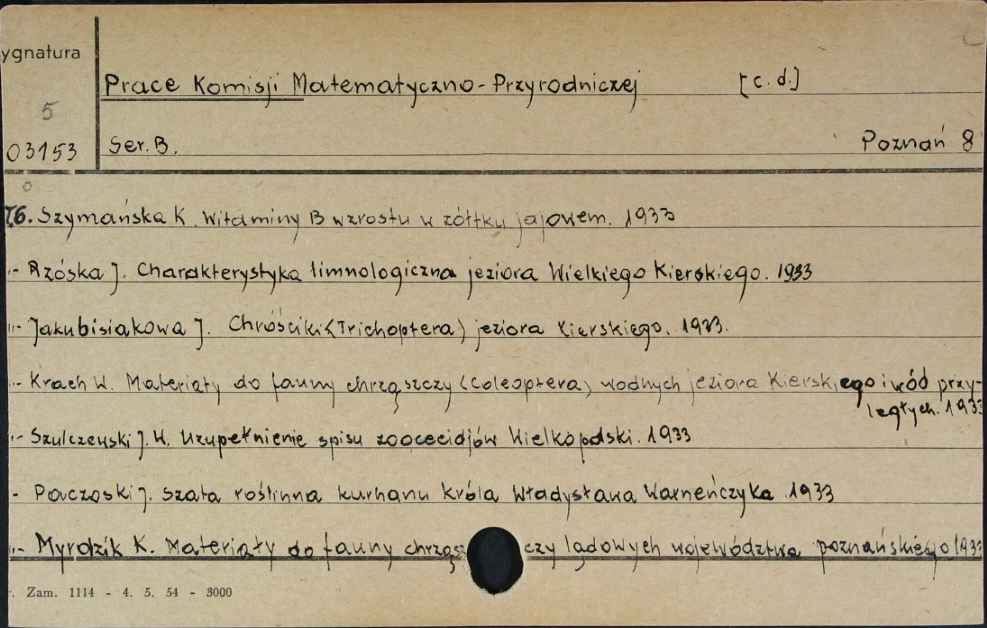 ygnatura
Prace Komisji Matematyczno-Przyrodniczej [c. d.]
5
03153 Ser. B. Poznań 8
76. Szymańska K. Witaminy B wzrostu w żółtku jajowem. 1933
"- Rzóska J. Charakterystyka limnologiczna jeziora Wielkiego Kierskiego. 1933
"- Jakubisiakowa J. Chróściki (Trichoptera) jeziora Kierskiego. 1933.
"- Krach W. Materiały do fauny chrząszczy (Coleoptera) wodnych jeziora Kierskiego i wód przy-
ległych. 1933
"- Szulczewski J. W. Uzupełnienie spisu zoocecidjów Wielkopolski. 1933
- Paczoski J. Szata roślinna kurhanu króla Władysława Warneńczyka. 1933
"- Myrdzik K. Materiały do fauny chrząszczy lądowych województwa poznańskiego 1933
. Zam. 1114 - 4. 5. 54 - 3000